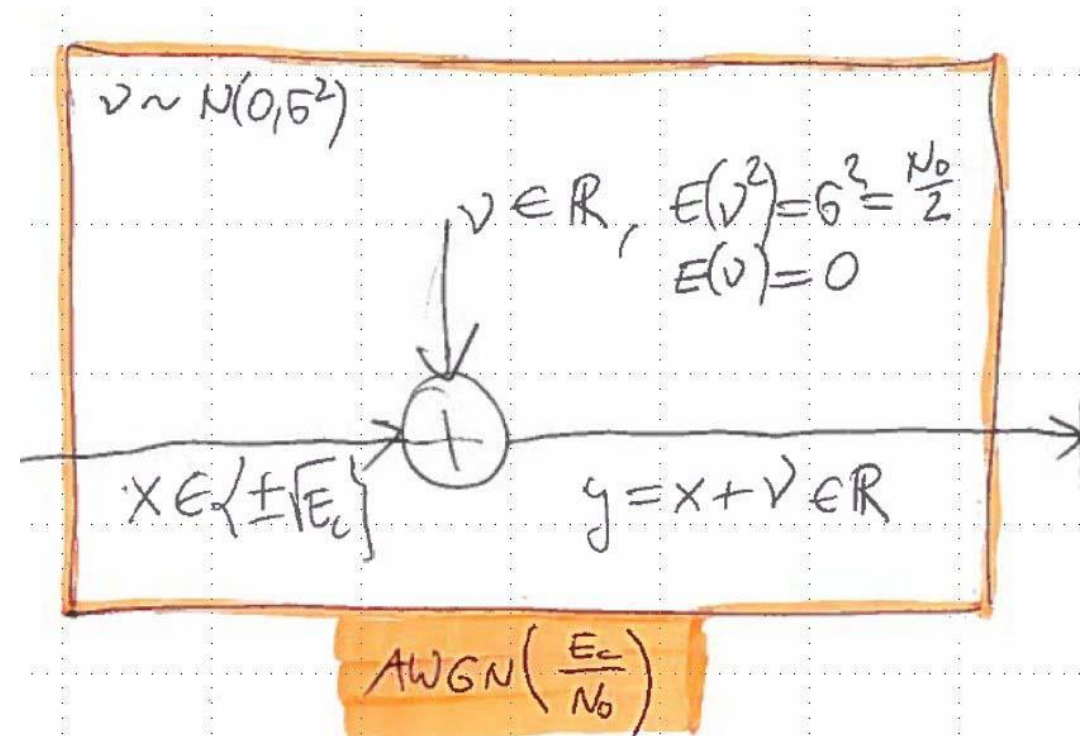 ν ~ N(0,σ²)
ν ∈ ℝ, E(ν²)=σ²=N₀/2
E(ν)=0
x ∈ {±√E_c}
y = x + ν ∈ ℝ
AWGN(E_c/N₀)